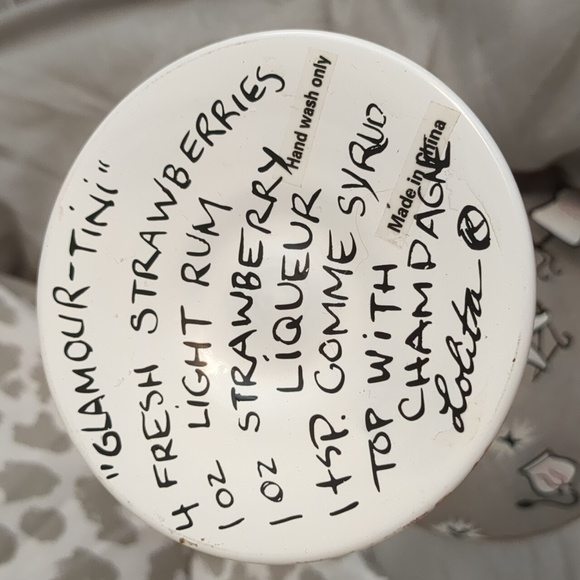 "GLAMOUR-TINI"
4 FRESH STRAWBERRIES
1 OZ LIGHT RUM
1 OZ STRAWBERRY
LIQUEUR
1 tSP. GOMME SYRUP
TOP WITH
CHAMPAGNE
Lolita ®
Hand wash only
Made in China